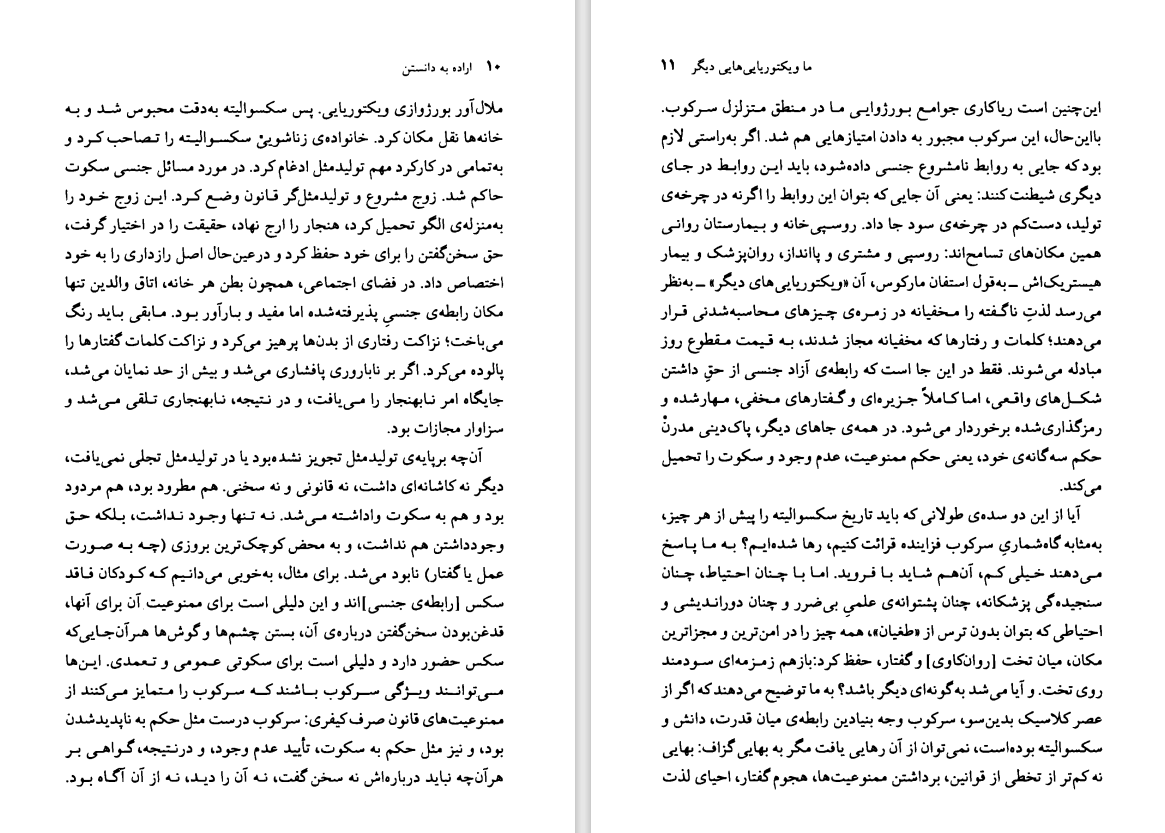 ۱۰ اراده به دانستن
ملال‌آور بورژوازی ویکتوریایی. پس سکسوالیته به‌دقت محبوس شد و به
خانه‌ها نقل مکان کرد. خانواده‌ی زناشوییْ سکسوالیته را تصاحب کرد و
به‌تمامی در کارکرد مهم تولیدمثل ادغام کرد. در مورد مسائل جنسی سکوت
حاکم شد. زوج مشروع و تولیدمثل‌گر قانون وضع کرد. این زوج خود را
به‌منزله‌ی الگو تحمیل کرد، هنجار را ارج نهاد، حقیقت را در اختیار گرفت،
حق سخن‌گفتن را برای خود حفظ کرد و درعین‌حال اصل رازداری را به خود
اختصاص داد. در فضای اجتماعی، همچون بطن هر خانه، اتاق والدین تنها
مکان رابطه‌ی جنسیِ پذیرفته‌شده اما مفید و بارآور بود. مابقی باید رنگ
می‌باخت؛ نزاکت رفتاری از بدن‌ها پرهیز می‌کرد و نزاکت کلمات گفتارها را
پالوده می‌کرد. اگر بر ناباروری پافشاری می‌شد و بیش از حد نمایان می‌شد،
جایگاه امر نابهنجار را می‌یافت، و در نتیجه، نابهنجاری تلقی می‌شد و
سزاوار مجازات بود.
آن‌چه برپایه‌ی تولیدمثل تجویز نشده‌بود یا در تولیدمثل تجلی نمی‌یافت،
دیگر نه کاشانه‌ای داشت، نه قانونی و نه سخنی. هم مطرود بود، هم مردود
بود و هم به سکوت واداشته می‌شد. نه تنها وجود نداشت، بلکه حق
وجودداشتن هم نداشت، و به محض کوچک‌ترین بروزی (چه به صورت
عمل یا گفتار) نابود می‌شد. برای مثال، به‌خوبی می‌دانیم که کودکان فاقد
سکس [رابطه‌ی جنسی]اند و این دلیلی است برای ممنوعیت آن برای آنها،
قدغن‌بودن سخن‌گفتن درباره‌ی آن، بستن چشم‌ها و گوش‌ها هرآن‌جایی‌که
سکس حضور دارد و دلیلی است برای سکوتی عمومی و تعمدی. این‌ها
می‌توانند ویژگی سرکوب باشند که سرکوب را متمایز می‌کنند از
ممنوعیت‌های قانون صرف‌کیفری: سرکوب درست مثل حکم به ناپدیدشدن
بود، و نیز مثل حکم به سکوت، تأیید عدم وجود، و درنتیجه، گواهی بر
هرآن‌چه نباید درباره‌اش نه سخن گفت، نه آن را دید، نه از آن آگاه بود.
ما ویکتوریایی‌هایی دیگر ۱۱
این‌چنین است ریاکاری جوامع بورژوایی ما در منطق متزلزل سرکوب.
بااین‌حال، این سرکوب مجبور به دادن امتیازهایی هم شد. اگر به‌راستی لازم
بود که جایی به روابط نامشروع جنسی داده‌شود، باید این روابط در جای
دیگری شیطنت کنند: یعنی آن جایی که بتوان این روابط را اگرنه در چرخه‌ی
تولید، دست‌کم در چرخه‌ی سود جا داد. روسپی‌خانه و بیمارستان روانی
همین مکان‌های تسامح‌اند: روسپی و مشتری و پاانداز، روان‌پزشک و بیمار
هیستریک‌اش ــ به‌قول استفان مارکوس، آن «ویکتوریایی‌های دیگر» ــ به‌نظر
می‌رسد لذتِ ناگفته را مخفیانه در زمره‌ی چیزهای محاسبه‌شدنی قرار
می‌دهند؛ کلمات و رفتارها که مخفیانه مجاز شدند، به قیمت مقطوع روز
مبادله می‌شوند. فقط در این جا است که رابطه‌ی آزاد جنسی از حقِ داشتن
شکل‌های واقعی، اما کاملاً جزیره‌ای و گفتارهای مخفی، مهارشده و
رمزگذاری‌شده برخوردار می‌شود. در همه‌ی جاهای دیگر، پاک‌دینی مدرنْ
حکم سه‌گانه‌ی خود، یعنی حکم ممنوعیت، عدم وجود و سکوت را تحمیل
می‌کند.
آیا از این دو سده‌ی طولانی که باید تاریخ سکسوالیته را پیش از هر چیز،
به‌مثابه گاه‌شماریِ سرکوب فزاینده قرائت کنیم، رها شده‌ایم؟ به ما پاسخ
می‌دهند خیلی کم، آن‌هم شاید با فروید. اما با چنان احتیاط، چنان
سنجیده‌گی پزشکانه، چنان پشتوانه‌ی علمیِ بی‌ضرر و چنان دوراندیشی و
احتیاطی که بتوان بدون ترس از «طغیان»، همه چیز را در امن‌ترین و مجزاترین
مکان، میان تخت [روان‌کاوی] و گفتار، حفظ کرد:بازهم زمزمه‌ای سودمند
روی تخت. و آیا می‌شد به‌گونه‌ای دیگر باشد؟ به ما توضیح می‌دهند که اگر از
عصر کلاسیک بدین‌سو، سرکوب وجه بنیادین رابطه‌ی میان قدرت، دانش و
سکسوالیته بوده‌است، نمی‌توان از آن رهایی یافت مگر به بهایی گزاف: بهایی
نه کم‌تر از تخطی از قوانین، برداشتن ممنوعیت‌ها، هجوم گفتار، احیای لذت